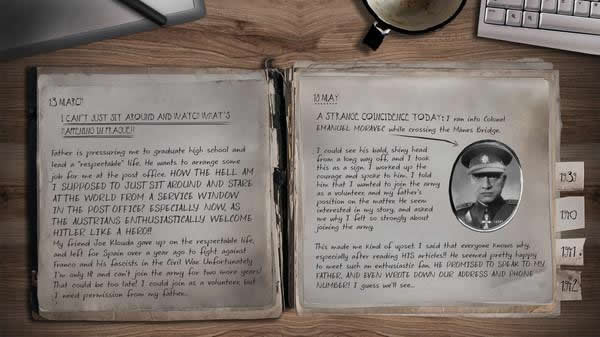 13 MARCH
I CAN'T JUST SIT AROUND AND WATCH WHAT'S
HAPPENING IN PRAGUE!!
Father is pressuring me to graduate high school and
lead a "respectable" life. He wants to arrange some
job for me at the post office. HOW THE HELL AM
I SUPPOSED TO JUST SIT AROUND AND STARE
AT THE WORLD FROM A SERVICE WINDOW
IN THE POST OFFICE? ESPECIALLY NOW, AS
THE AUSTRIANS ENTHUSIASTICALLY WELCOME
HITLER LIKE A HERO!!
My friend Joe Klouda gave up on the respectable life,
and left for Spain over a year ago to fight against
Franco and his fascists in the Civil War. Unfortunately
I'm only 18 and can't join the army for two more years!
That could be too late! I could join as a volunteer, but
I need permission from my father...
18 MAY
A STRANGE COINCIDENCE TODAY: I ran into Colonel
EMANUEL MORAVEC while crossing the Mánes Bridge.
I could see his bald, shiny head
from a long way off, and I took
this as a sign. I worked up the
courage and spoke to him. I told
him that I wanted to join the army
as a volunteer and my father's
position on the matter. He seem
interested in my story, and asked
me why I felt so strongly about
joining the army.
This made me kind of upset. I said that everyone knows why,
especially after reading HIS articles!! He seemed pretty happy
to meet such an enthusiastic fan. HE PROMISED TO SPEAK TO MY
FATHER, AND EVEN WROTE DOWN OUR ADDRESS AND PHONE
NUMBER! I guess we'll see...
1939
1940
1941
1942